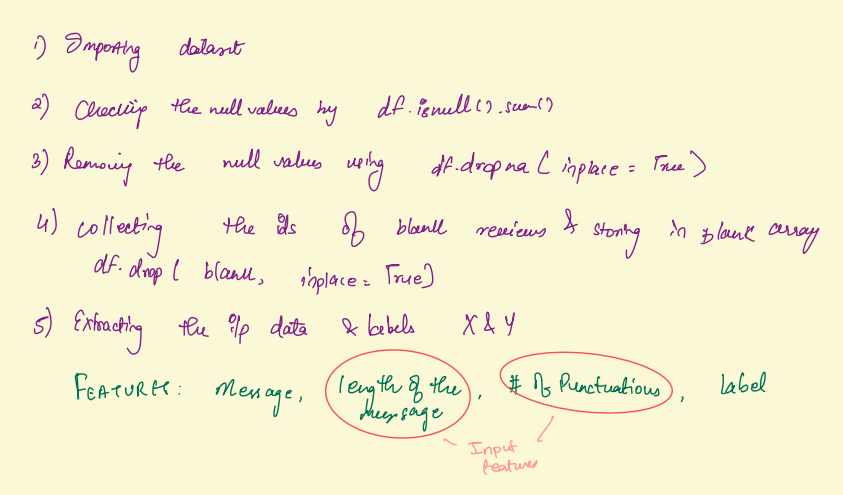 1) Importing dataset
2) Checking the null values by df.isnull().sum()
3) Removing the null values using df.dropna( inplace = True)
4) collecting the ids of blank reviews & storing in blank array
df.drop( blank, inplace = True)
5) Extracting the i/p data & labels X & Y
FEATURES: Message, length of the message, # of Punctuations, Label
Input features